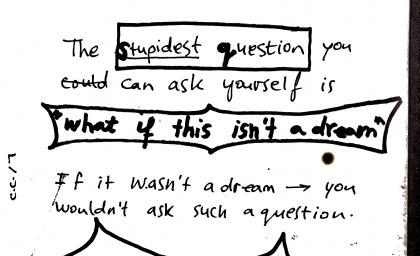 The stupidest question you
could can ask yourself is
"what if this isn't a dream"
If it wasn't a dream → you
wouldn't ask such a question.